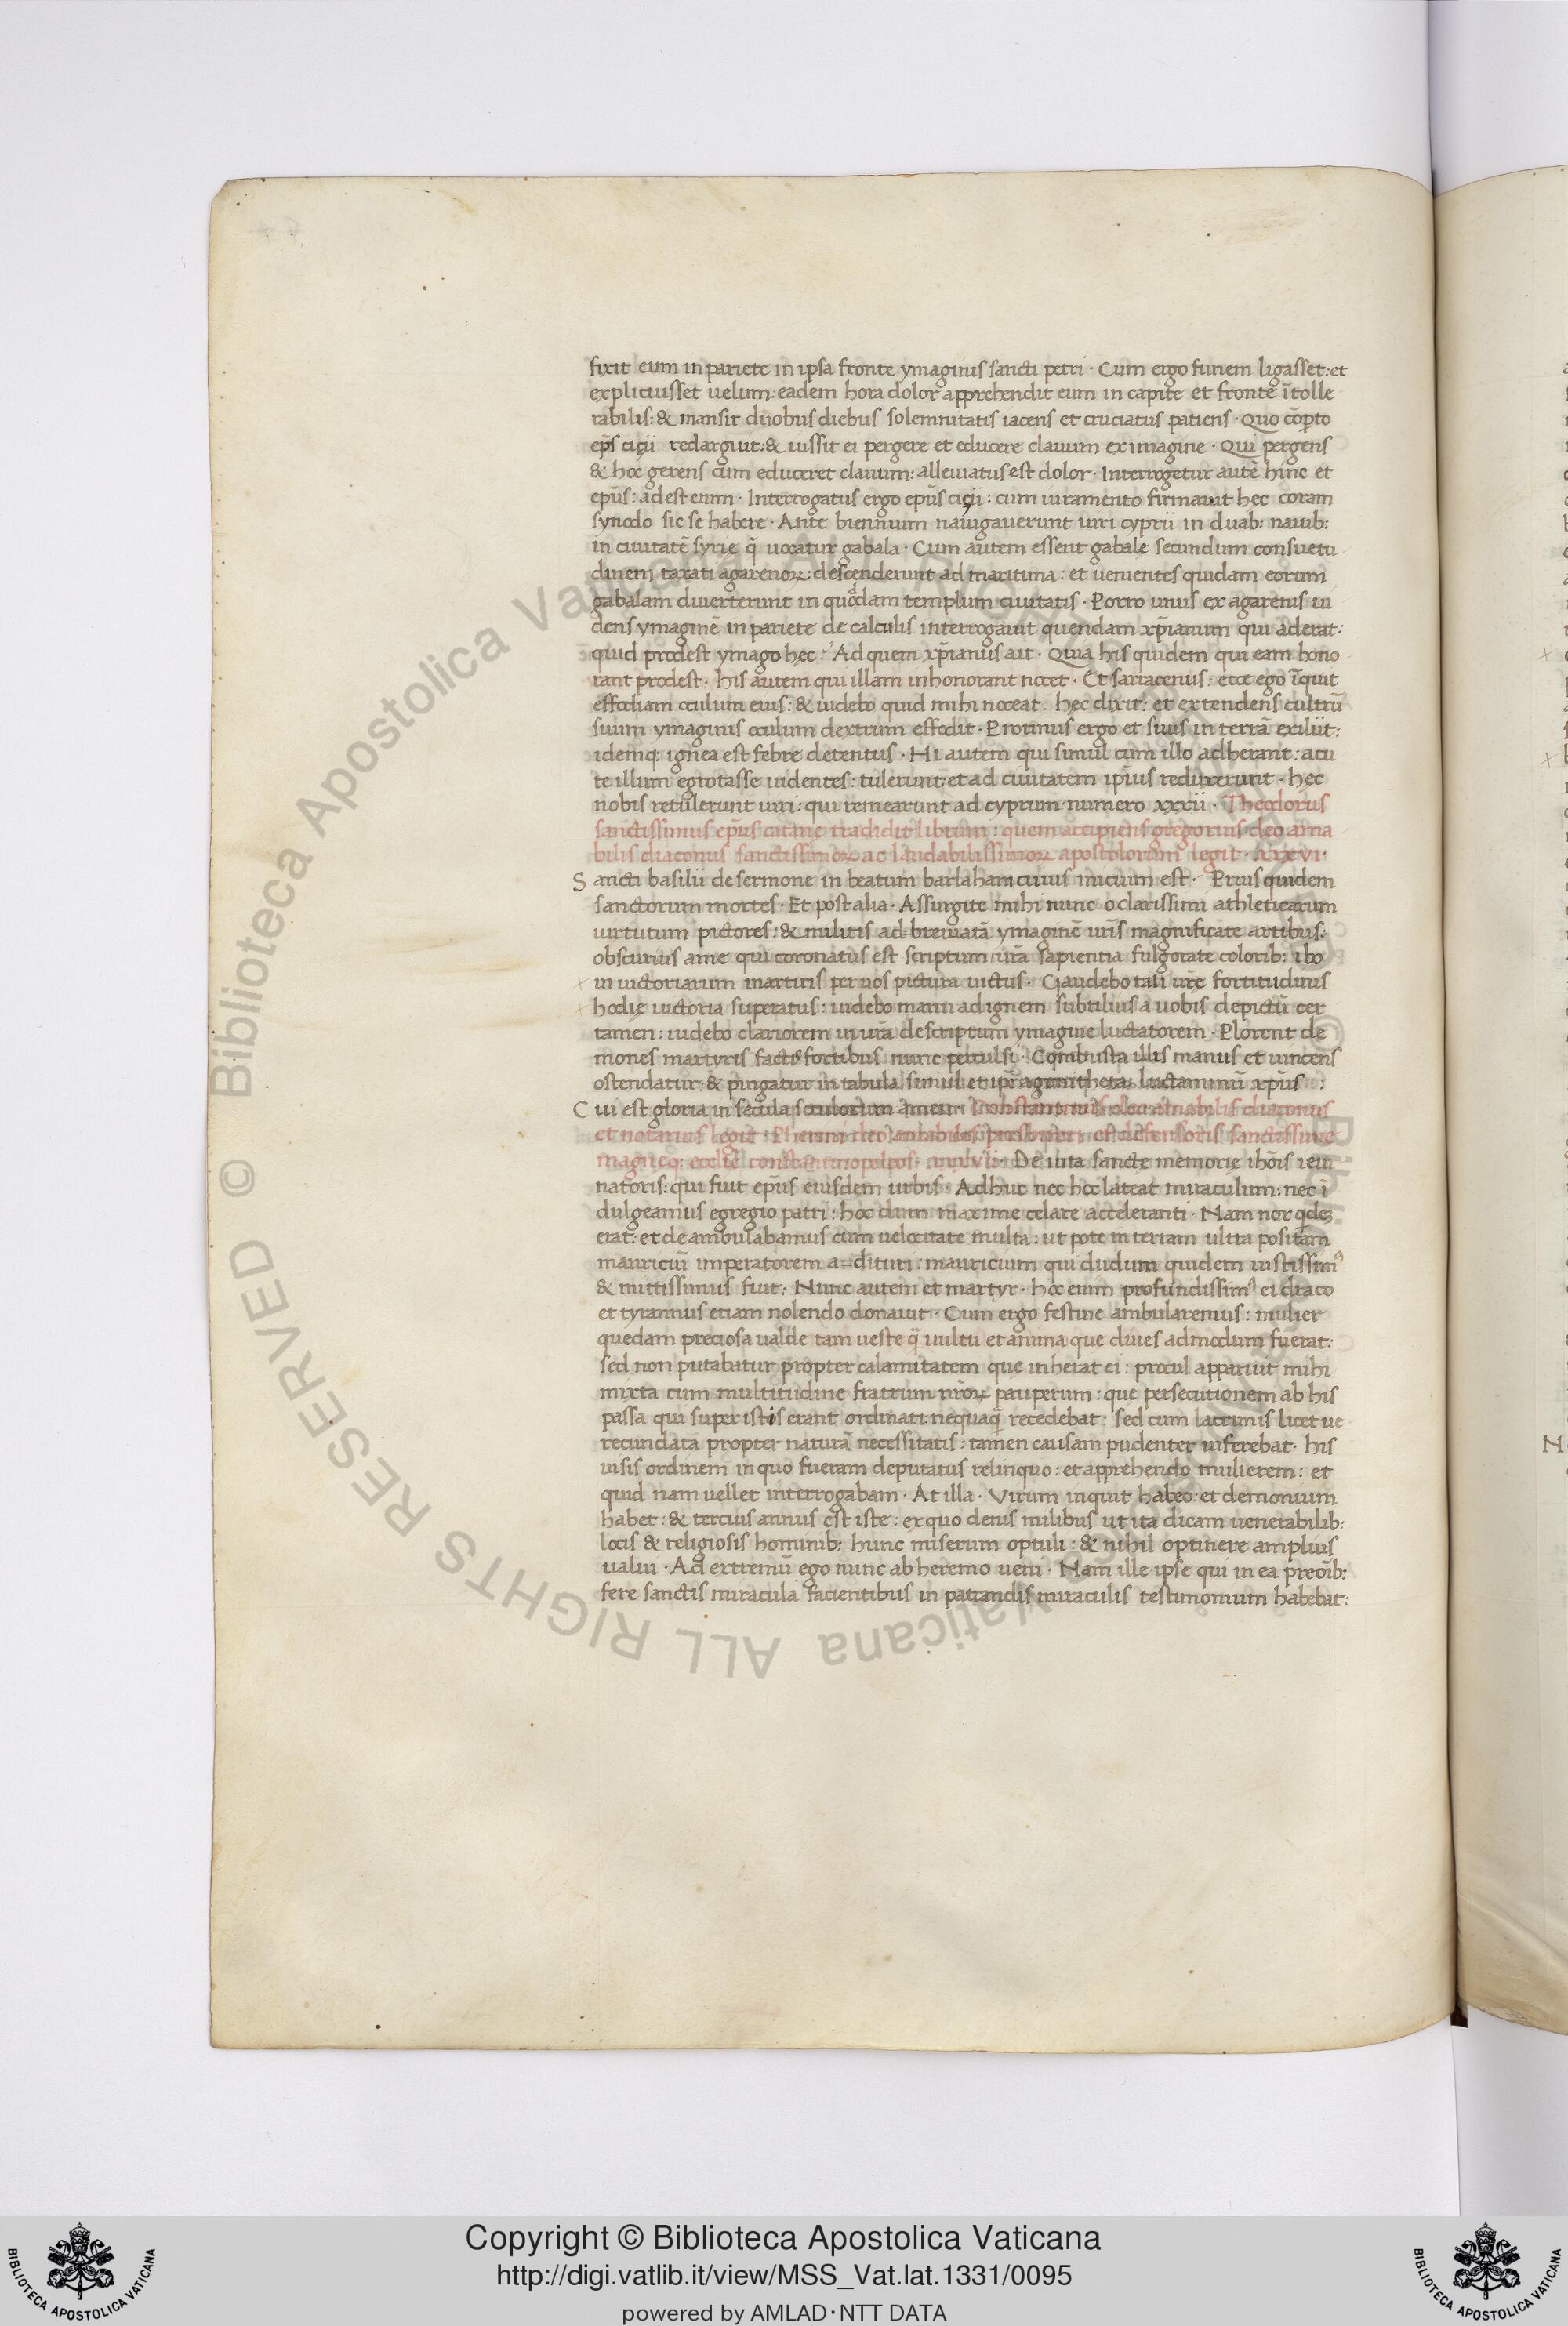 fixit eum in pariete in ipsa fronte ymaginis sancti petri · Cum ergo funem ligasset: et
explicuisset uelum: eadem hora dolor apprehendit eum in capite et fronte ĩtolle
rabilis: & mansit duobus diebus solemnitatis iacens et cruciatus patiens · Quo cõpto
ep̃s cicii redarguit: & iussit ei pergere et educere clauum ex imagine · Qui pergens
& hoc gerens cum educeret clauum: alleuiatus est dolor · Interrogetur autẽ hinc et
ep̃us: adest enim · Interrogatus ergo ep̃us cicii: cum iuramento firmauit hec coram
synodo sic se habere · Ante biennium nauigauerunt uiri cyprii in duab: nauib:
in ciuitatẽ syrie q̃ uocatur gabala · Cum autem essent gabale secundum consuetu
dinem taxati agarenoꝝ: descenderunt ad maritima: et uenientes quidam eorum
gabalam diuerterunt in quoddam templum ciuitatis · Porro unus ex agarenis ui
dens ymaginẽ in pariete de calculis interrogauit quendam xp̃ianum qui aderat:
quid prodest ymago hec: Ad quem xp̃ianus ait · Quia his quidem qui eam hono
rant prodest · his autem qui illam inhonorant nocet · Et sarracenus: ecce ego ĩquit
effodiam oculum eius: & uidebo quid mihi noceat · hec dixit: et extendens cultrũ
suum ymaginis oculum dextrum effodit · Protinus ergo et suus in terrã exiliit:
idemq: ignea est febre detentus · Hi autem qui simul cum illo adherant: acu
te illum egrotasse uidentes: tulerunt et ad ciuitatem ip̃ius reduxerunt · hec
nobis retulerunt uiri: qui remearunt ad cyprum numero xxxii · Theodorus
sanctissimus ep̃us catane tradidit librum: quem accipiens gregorius deo ama
bilis diaconus sanctissimoꝝ ac laudabilissimoꝝ apostolorum legit ·
S ancti basilii de sermone in beatum barlaham cuius inicium est · Prius quidem
sanctorum mortes · Et post alia · Assurgite mihi nunc o clarissimi athleticarum
uirtutum pictores: & militis ad breuiatã ymaginẽ ur̃is magnificate artibus:
obscurius a me qui coronatus est scriptum ur̃a sapientia fulgorate colorib: ibo
in uictoriarum martiris per uos pictura uictus · Gaudebo tali ur̃e fortitudinis
hodie uictoria superatus: uidebo manũ ad ignem subtilius a uobis depictũ cer
tamen: uidebo clariorem in ur̃a descriptum ymagine luctatorem · Plorent de
mones martyris factis fortibus nunc perculsi · Combusta illis manus et uincens
ostendatur & pingatur in tabula simul et ip̃e agonitheta luctaminũ xp̃us:
C ui est gloria in secula seculorum amen · Constantinus deo amabilis diaconus
et notarius legit
magneq: ecclẽ De uita sancte memorie ioh̃is ieiu
natoris: qui fuit ep̃us eiusdem urbis · Adhuc nec hoc lateat miraculum: nec ĩ
dulgeamus egregio patri: hoc dum maxime celare acceleranti · Nam nox qdẽ
erat: et deambulabamus cum uelocitate multa: ut pote interiam ultra positam
mauriciũ imperatorem a=dituri: mauricium qui dudum quidem iustissim⁹
& mittissimus fuit · Nunc autem et martyr · hoc enim profundissim⁹ ei draco
et tyrannus etiam nolendo donauit · Cum ergo festine ambularemus: mulier
quedam preciosa ualde tam ueste q̃ uultu et anima que diues admodum fuerat:
sed non putabatur propter calamitatem que inherat ei: procul apparuit mihi
mixta cum multitudine fratrum nr̃oꝝ pauperum: que persecutionem ab his
passa qui super istis erant ordinati nequaq̃ recedebat: sed cum lacrimis licet ue
recundata propter naturã necessitatis: tamen causam pudenter inferebat · his
uisis ordinem in quo fueram deputatus relinquo: et apprehendo mulierem: et
quid nam uellet interrogabam · At illa · Virum inquit habeo: et demonium
habet: & tercius annus est iste: ex quo denis milibus ut ita dicam uenerabilib:
locis & religiosis hominib: hunc miserum optuli: & nihil optinere amplius
ualui · Ad extremũ ego nunc ab heremo ueni · Nam ille ipse qui in ea preõib:
fere sanctis miracula facientibus in patrandis miraculis testimonium habebat:
Copyright © Biblioteca Apostolica Vaticana
http://digi.vatlib.it/view/MSS_Vat.lat.1331/0095
powered by AMLAD·NTT DATA